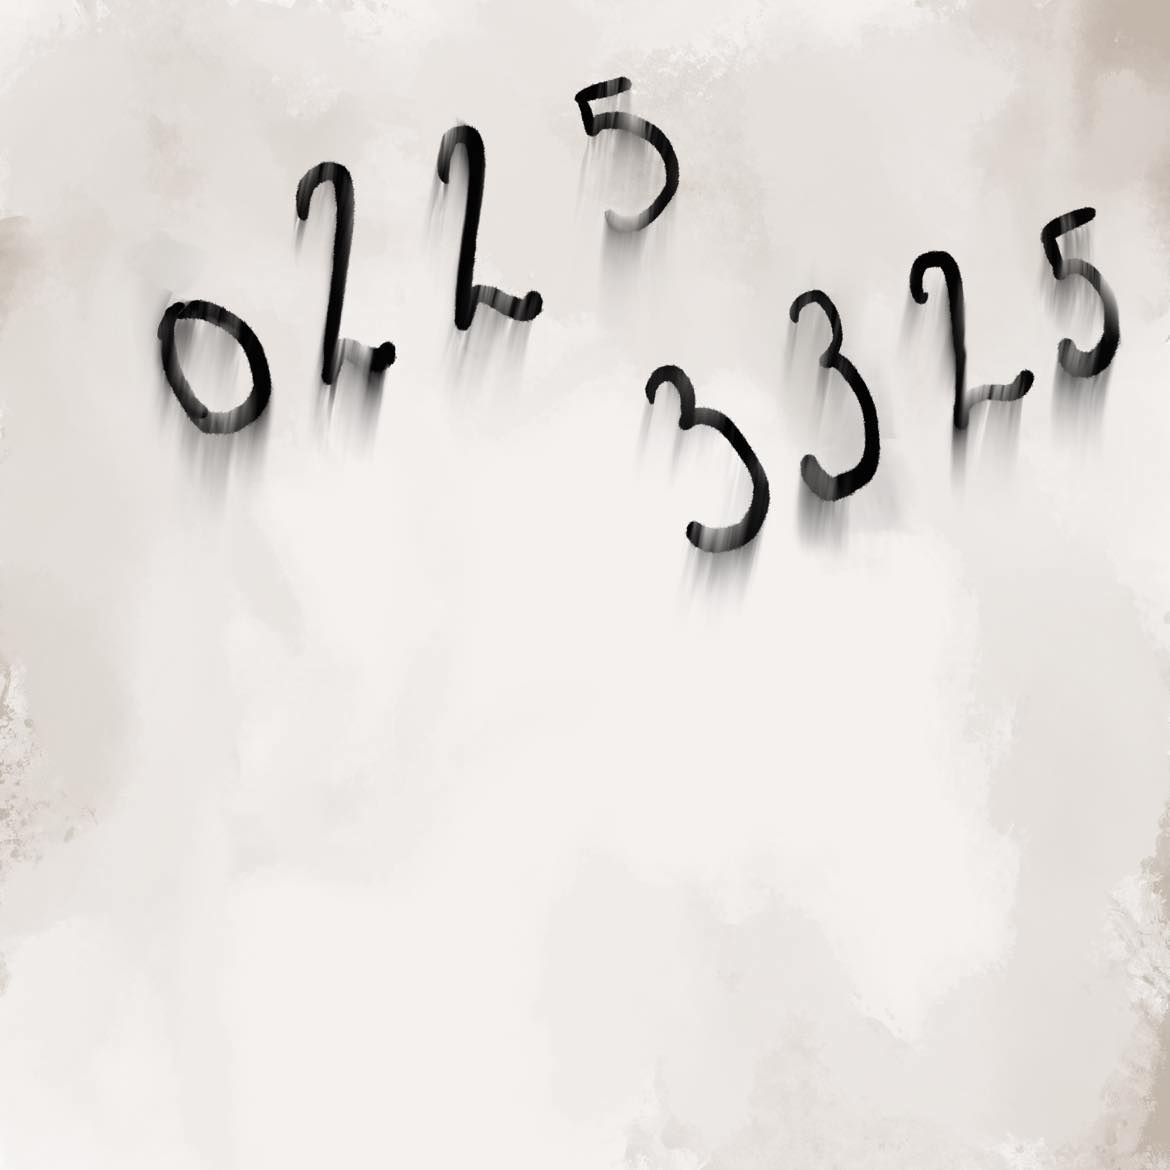 0225
3325